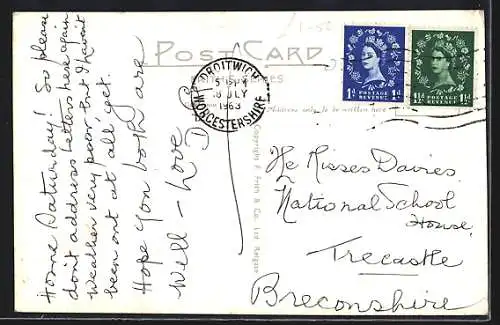 POST CARD
DROITWICH
8 JLY
1963
WORCESTERSHIRE
1D POSTAGE REVENUE 1D
1½D POSTAGE REVENUE 1½D
Address only to be written here
Home Saturday! So please
don't address letters here again
Weather very poor but I haven't
been out at all yet.
Hope you both are
Well - Love D
Copyright F. Frith & Co., Ltd. Reigate
The Misses Davies
National School
House,
Trecastle
Breconshire